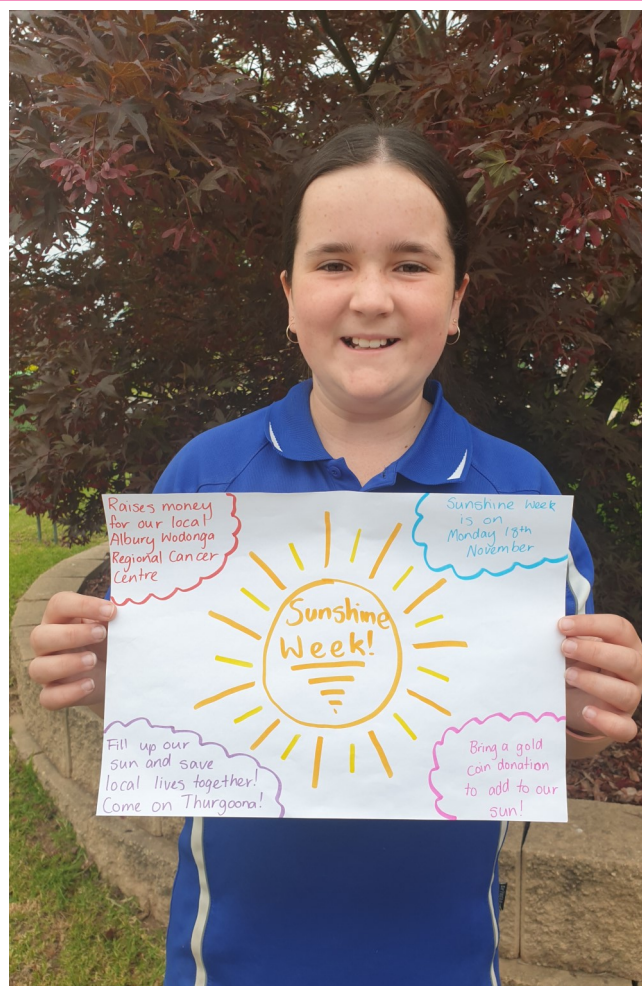 Raises money
for our local
Albury Wodonga
Regional Cancer
Centre
Sunshine Week
is on
Monday 18th
November
Sunshine
Week!
Fill up our
sun and save
local lives together!
Come on Thurgoona!
Bring a gold
coin donation
to add to our
sun!